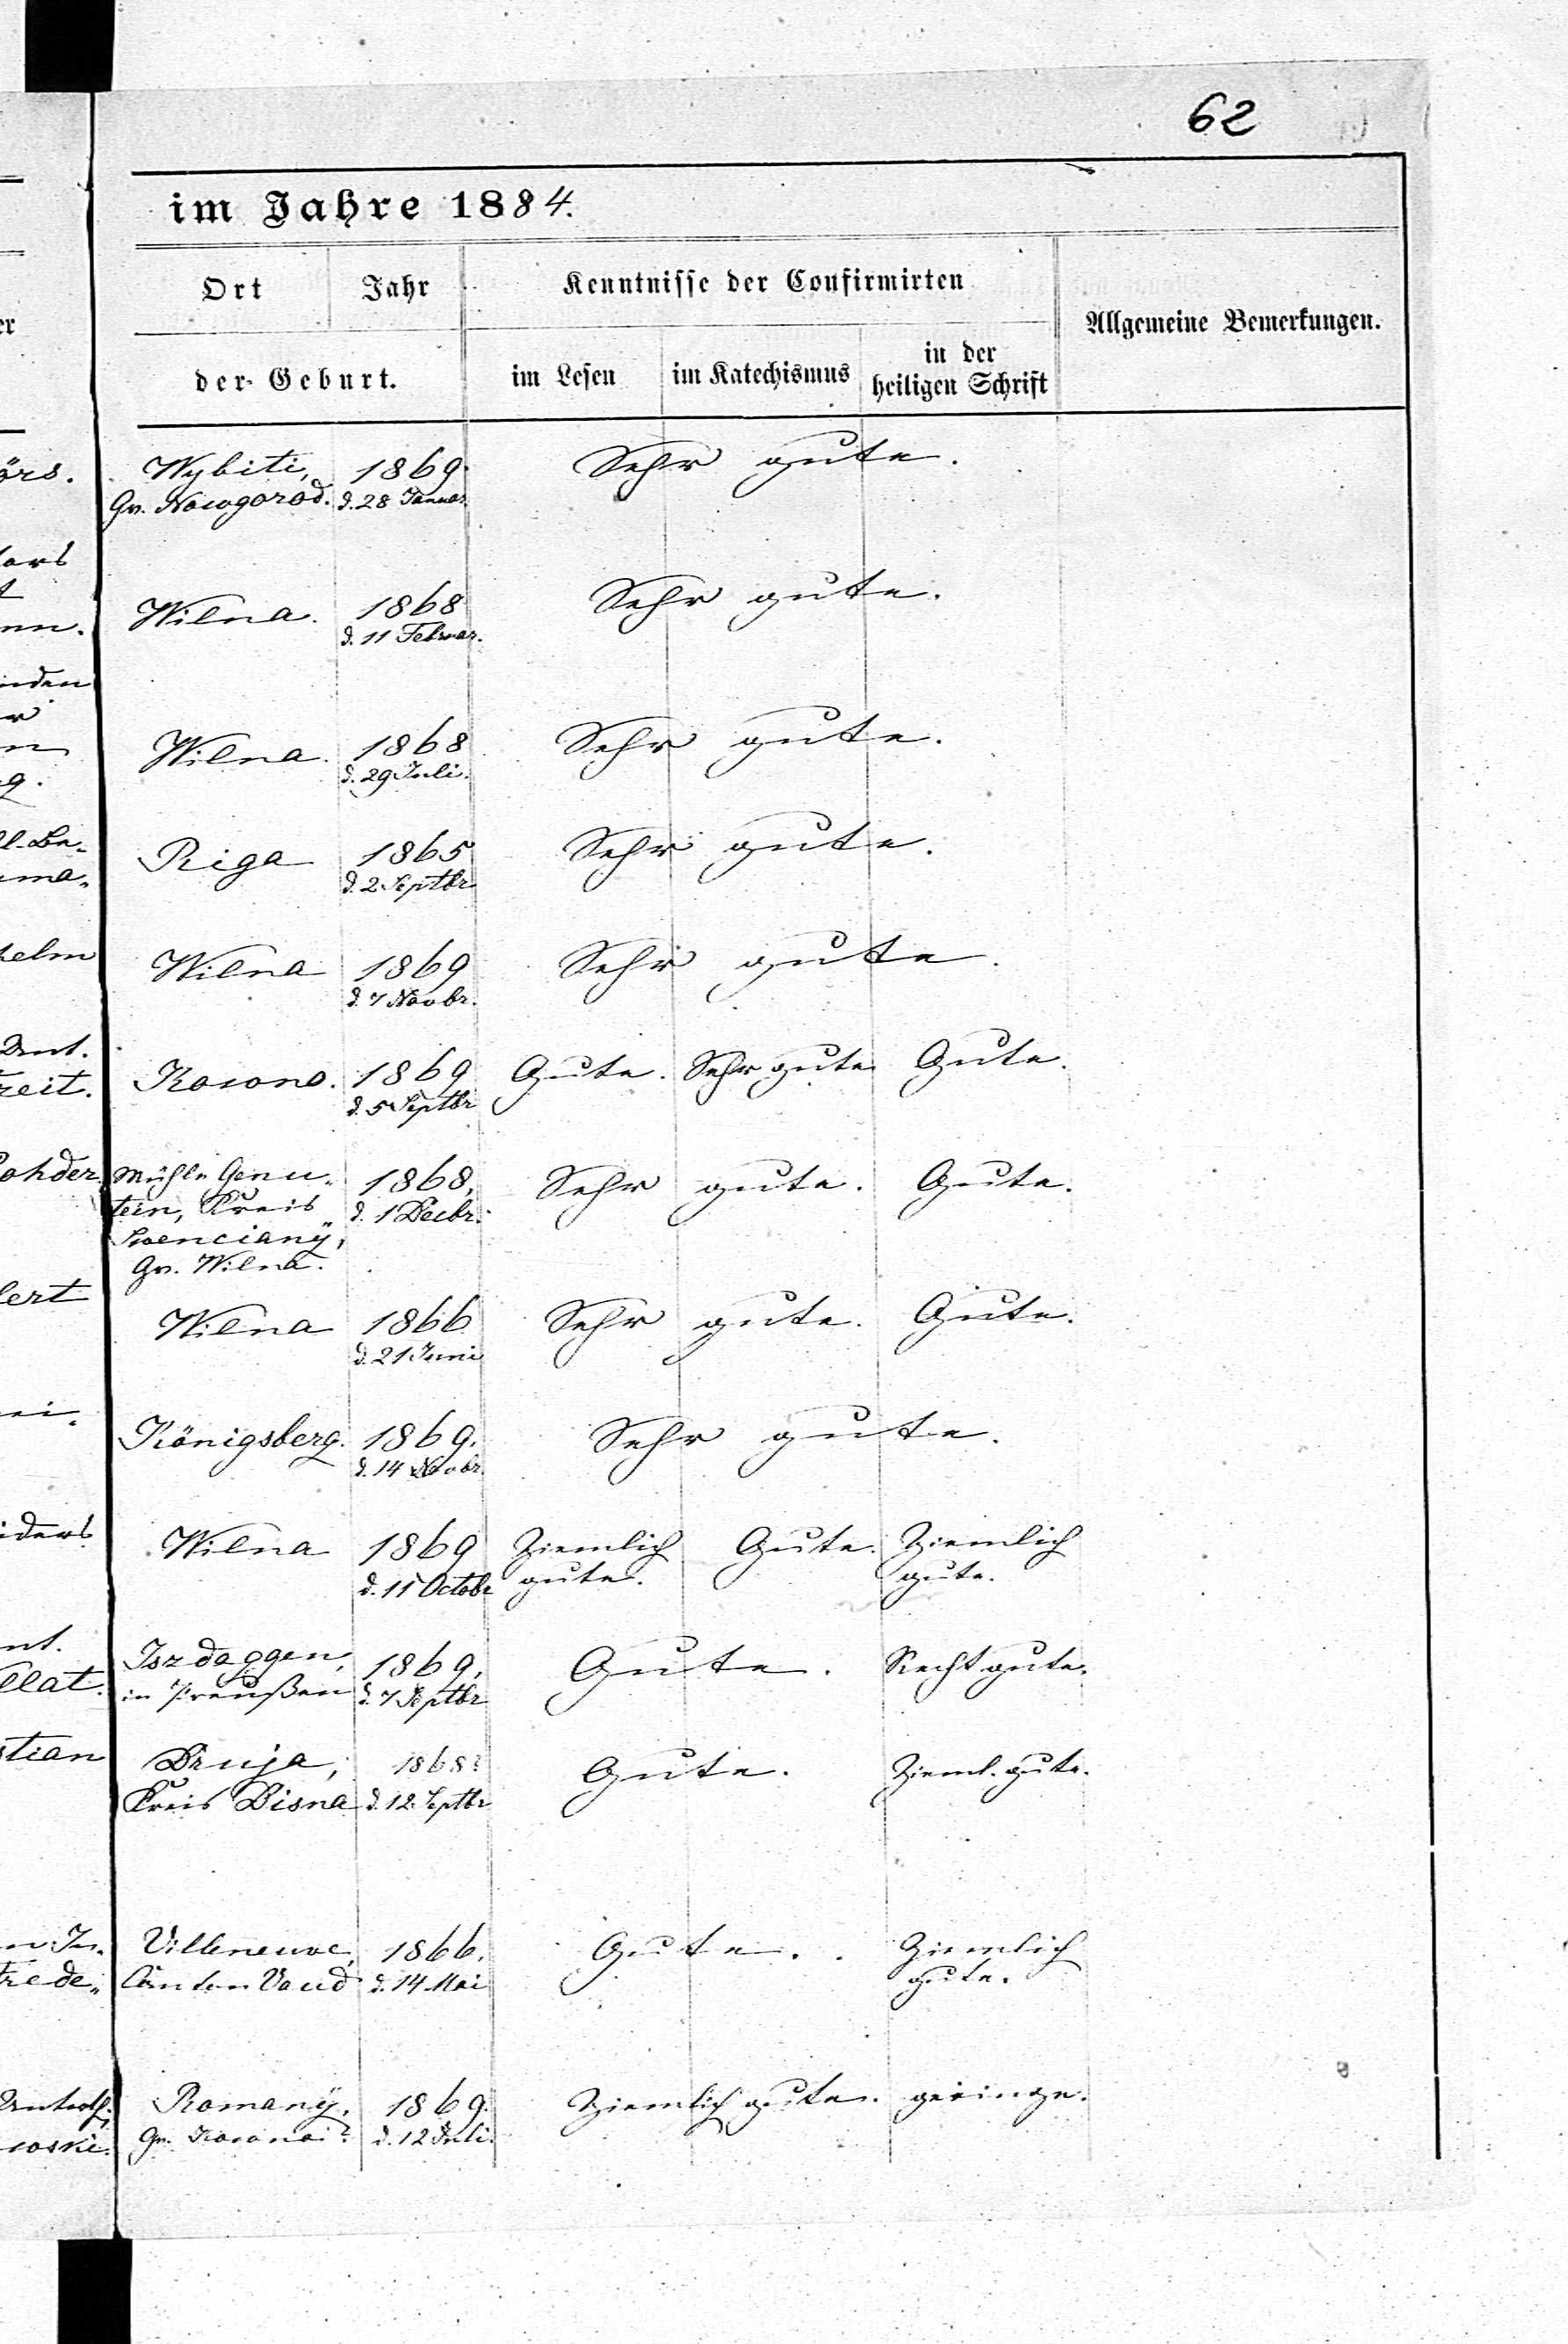 62
im Jahre 1884.
Ort Jahr
der Geburt.
Kenntnisse der Confirmirten
im Lesen im Katechismus in der heiligen Schrift
Allgemeine Bemerkungen.
örs. Wybiti, 1869. Sehr gute.
Gv. Nowgorod. d. 28 Januar
nn. Wilna. 1868 Sehr gute.
d. 11 Februar.
nden
Wilna. 1868 Sehr gute.
g. d. 29 Juli.
Riga 1865 Sehr gute.
d. 2 Septbr
helm Wilna 1869 Sehr gute.
d. 7 Novbr.
reit. Kowno. 1869 Gute. Sehr gute Gute.
d. 5 Septbr
ohder Mühle Genu- 1868, Sehr gute. Gute.
tein, Kreis d. 1 Decbr.
Swenciany,
Gv. Wilna.
lert
Wilna 1866 Sehr gute. Gute.
d. 21 Juni
Königsberg. 1869. Sehr gute.
d. 14 Novbr.
iders Wilna 1869 Ziemlich Gute. Ziemlich
d. 11 Octobr gute. gute.
nt. Iszdaggen, 1869, Gute. Recht gute.
llat. in Preußen d. 7 Septbr
stian Druja, 1868? Gute. Zieml. gute.
Kreis Disna d. 12 Septbr
Villeneuve, 1866. Gute. Ziemlich
rede„ Canton Vaud d. 14 Mai gute.
Romany, 1869. Ziemlich gute. geringe.
woski. Gv. d. 12 Juli.